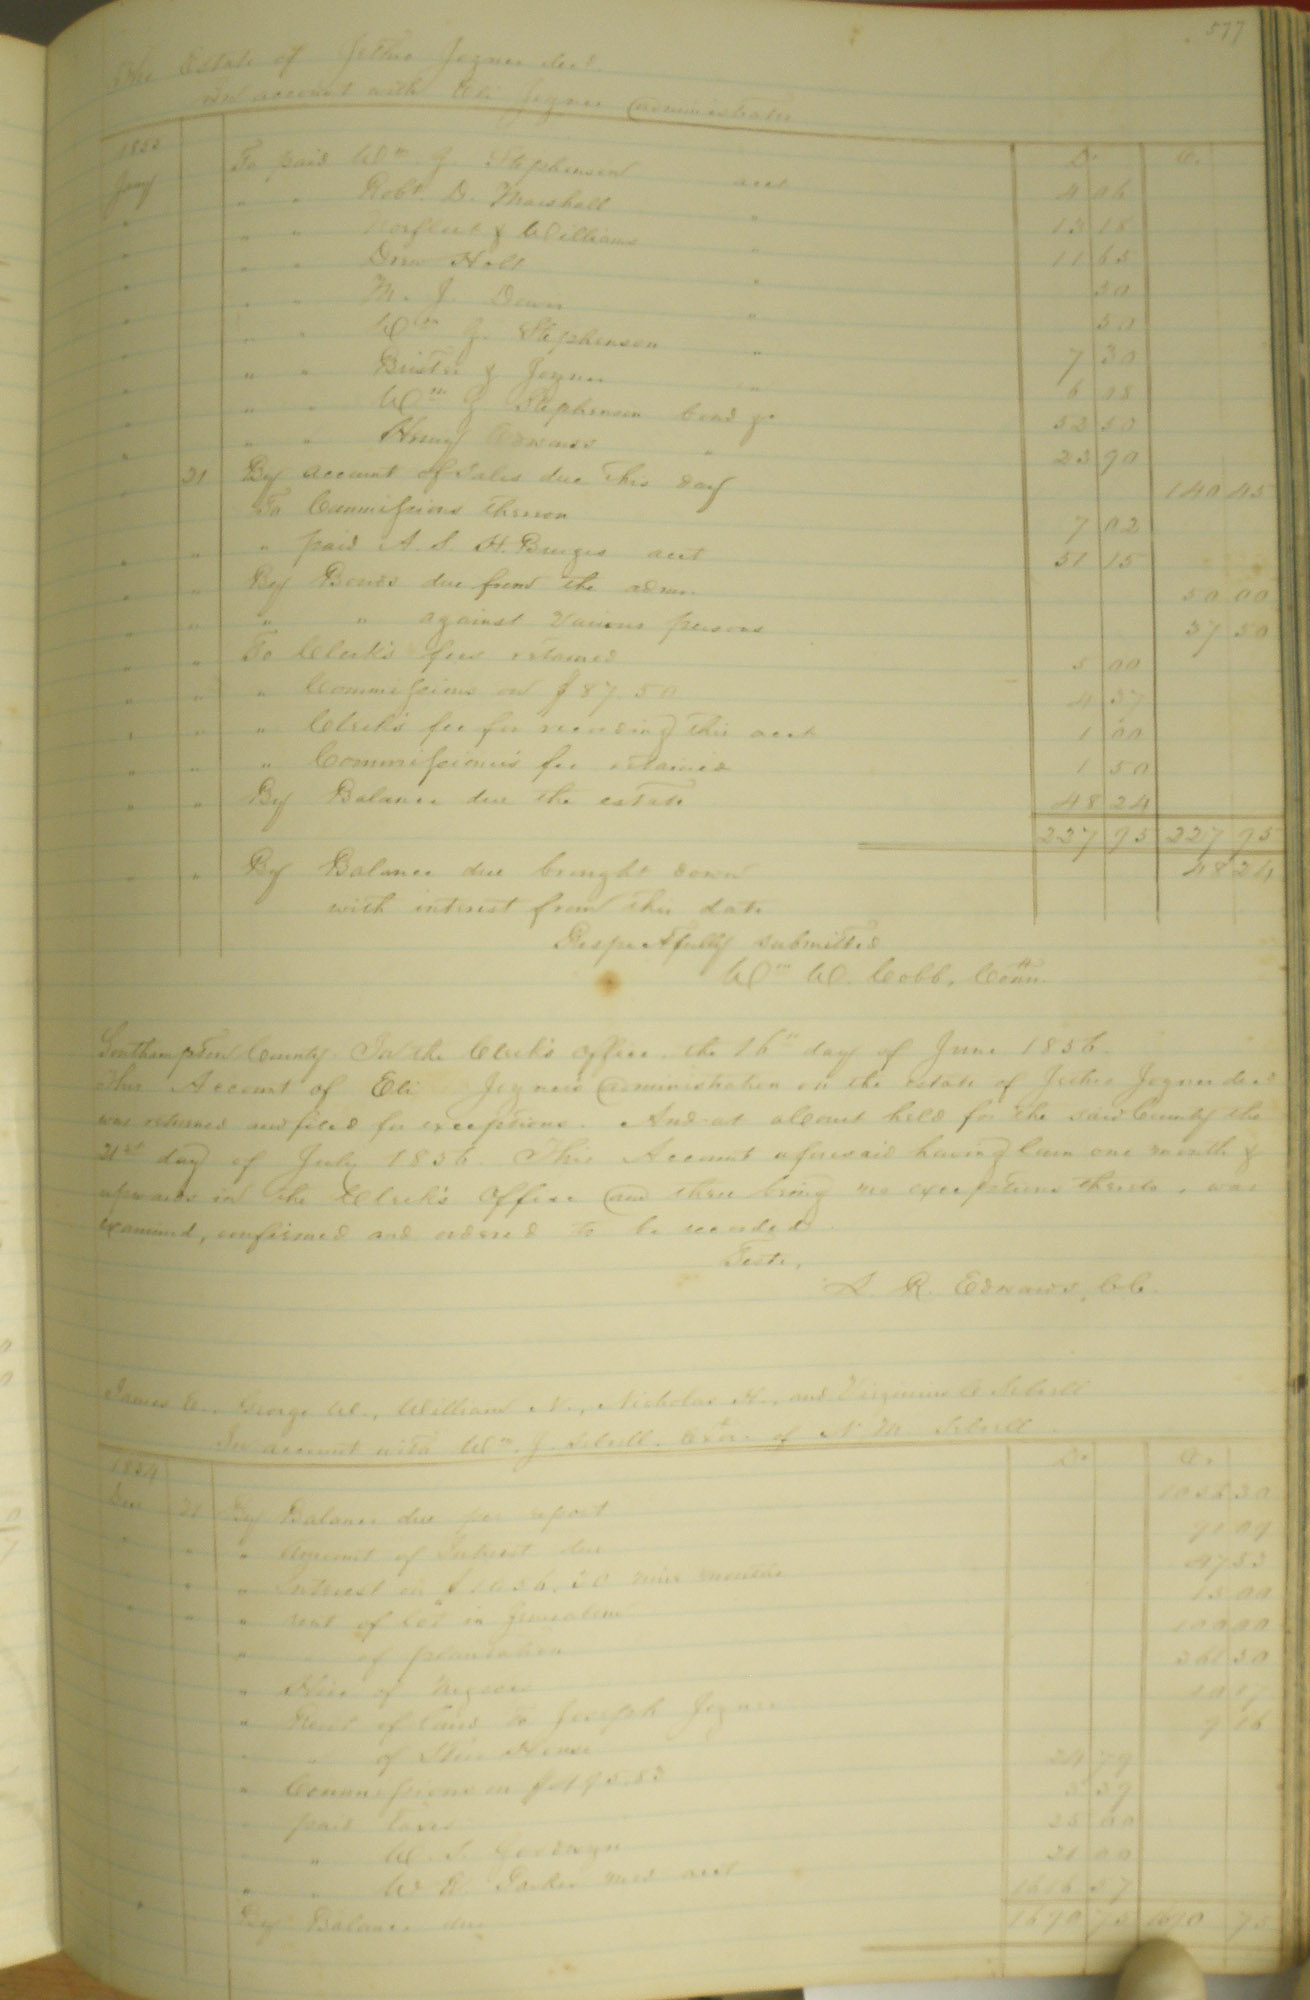 577
The Estate of Jethro Joyner decd.
In account with Eli Joyner administrator
1855 Dr. Cr.
Jany To paid Wm. J. Stephenson acct 4 06
" " " Robt. D. Marshall " 13 18
" " " Norfleet & Williams " 11 65
" " " Drew Holt " 50
" " " M. J. Deans " 50
" " " Wm. J. Stephenson " 7 30
" " " Britts & Joyner " 6 08
" " " Wm. J. Stephenson bond &c 52 50
" " " Henry Edwards " 23 90
" 21 By account of Sales due this day 140 45
To Commissions thereon 7 02
" " " paid A. S. H. Burges acct 51 15
" " By Bonds due from the admr. 50 00
" " " " against various persons 37 50
" " To Clerk's fees retained 5 00
" " " Commissions on $87.50 4 37
" " " Clerk's fee for recording this acct 1 00
" " " Commissioner's fee retained 1 50
" " By Balance due the estate 48 24
227 95 227 95
" " By Balance due brought down 48 24
with interest from this date
Respectfully submitted
Wm. W. Cobb, Comr.
Southampton County. In the Clerk's office the 16th day of June 1856.
This Account of Eli Joyner's administration on the estate of Jethro Joyner decd
was returned and filed for exceptions. And at a Court held for the said County the
21st day of July 1856. This Account aforesaid having lain one month &
upwards in the Clerk's Office and there being no exceptions thereto, was
examined, confirmed and ordered to be recorded.
Teste,
L. R. Edwards, C.C.
James E., George W., William N., Nicholas H., and Virginius A. Sebrell
In account with Wm. J. Sebrell. Exor. of N. M. Sebrell
1854 Dr. Cr.
Dec 31 By Balance due per report 1056 30
" " " Amount of Interest due 91 09
" " " Interest on $1056.30 nine months 47 53
" " " rent of lot in Jerusalem 15 00
" " of plantation 100 00
" Hire of Negroes 361 50
" Rent of land to Joseph Joyner
" " of Store House
" Commissions on $495.83 24 79
" paid taxes 3 39
" " W. S. Goodwyn 25 00
" " W. R. Parker med. acct 21 00
By Balance due 1616 57
1670 75 1670 75